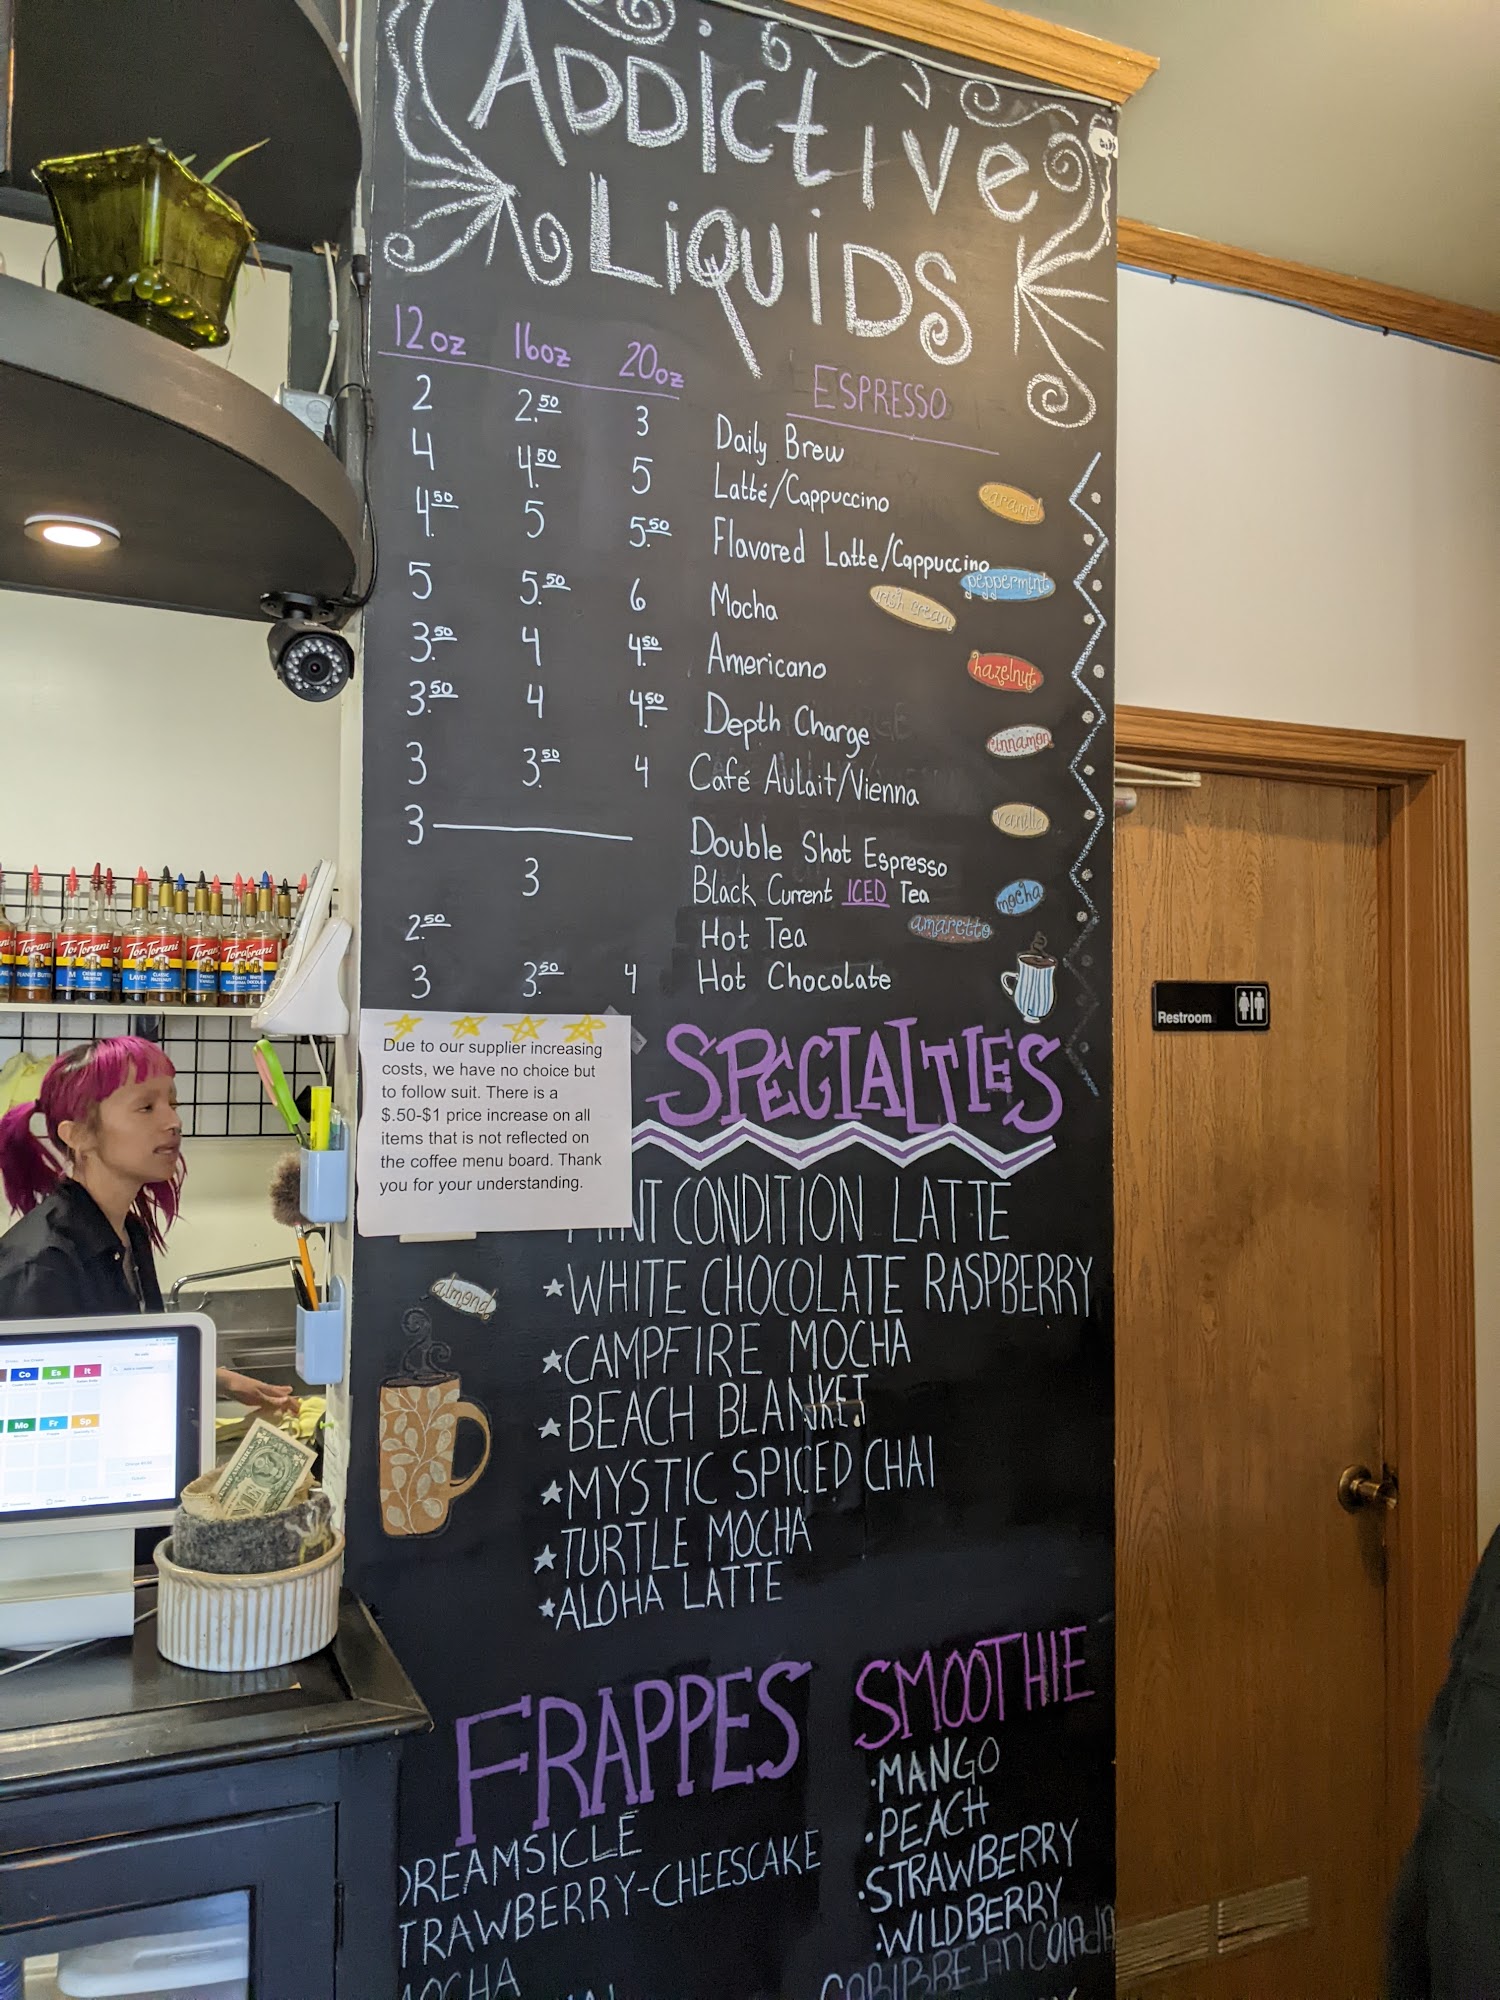 ADDictive
LiQUiDS
12oz 16oz 20oz ESPRESSO
2 2.50 3 Daily Brew
4 4.50 5 Latté/Cappuccino
4.50 5 5.50 Flavored Latte/Cappuccino
5 5.50 6 Mocha
3.50 4 4.50 Americano
3.50 4 4.50 Depth Charge
3 3.50 4 Café Aulait/Vienna
3 Double Shot Espresso
3 Black Current ICED Tea
2.50 Hot Tea
3 3.50 4 Hot Chocolate
caramel
peppermint
irish cream
hazelnut
cinnamon
mocha
amaretto
Due to our supplier increasing
costs, we have no choice but
to follow suit. There is a
$.50-$1 price increase on all
items that is not reflected on
the coffee menu board. Thank
you for your understanding.
SPECIALTIES
CONDITION LATTE
WHITE CHOCOLATE RASPBERRY
CAMPFIRE MOCHA
BEACH BLANKET
MYSTIC SPICED CHAI
TURTLE MOCHA
ALOHA LATTE
almond
FRAPPES
DREAMSICLE
TRAWBERRY-CHEESCAKE
MOCHA
SMOOTHIE
·MANGO
·PEACH
·STRAWBERRY
·WILDBERRY
CARIBBEAN COLADA
Restroom
Torani
Torani
Torani
Torani
PEANUT BUTT
Co Es It
Mo Fr Sp